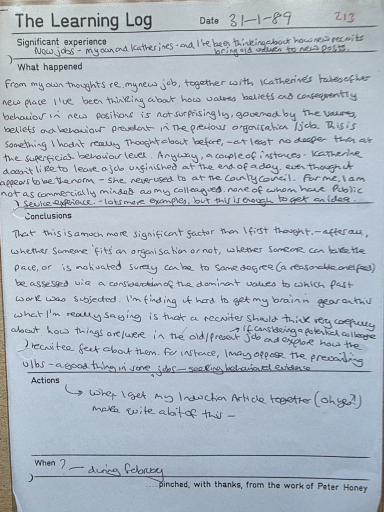 The Learning Log Date 31-1-89 213
Significant experience
New jobs - my own and Katherines - and I've been thinking about how new recruits
bring old values to new posts.
What happened
From my own thoughts re. my new job, together with Katherine's tales of her
new place I've been thinking about how values beliefs and consequently
behaviour in new positions is not surprisingly, governed by the values,
beliefs and behaviour prevalent in the previous organisation/job. This is
something I hadn't really thought about before, - at least no deeper than at
the superficial behaviour level. Anyway, a couple of instances - Katherine
doesn't like to leave a job unfinished at the end of a day, even though it
appears to be the norm - she never used to at the County Council. For me, I am
not as commercially minded as my colleagues, none of whom have Public
Service experience. - lots more examples, but this is enough to get an idea.
Conclusions
That this is a much more significant factor than I first thought. - after all,
whether someone 'fits' an organisation or not, whether someone can take the
pace, or is motivated surely can be to some degree (a reasonable one I feel)
be assessed via a consideration of the dominant values to which past
work was subjected. I'm finding it hard to get my brain in gear on this
what I'm really saying is that a recruiter should think very carefully
about how things are/were in the old/present job and explore how the
if considering a potential colleague
recruitee feels about them. For instance, I may oppose the prevailing
v/bs - a good thing in some jobs - seeking behavioural evidence
Actions
When I get my Induction Article together (oh yes?!)
make write a bit of this -
When? - during February
...pinched, with thanks, from the work of Peter Honey